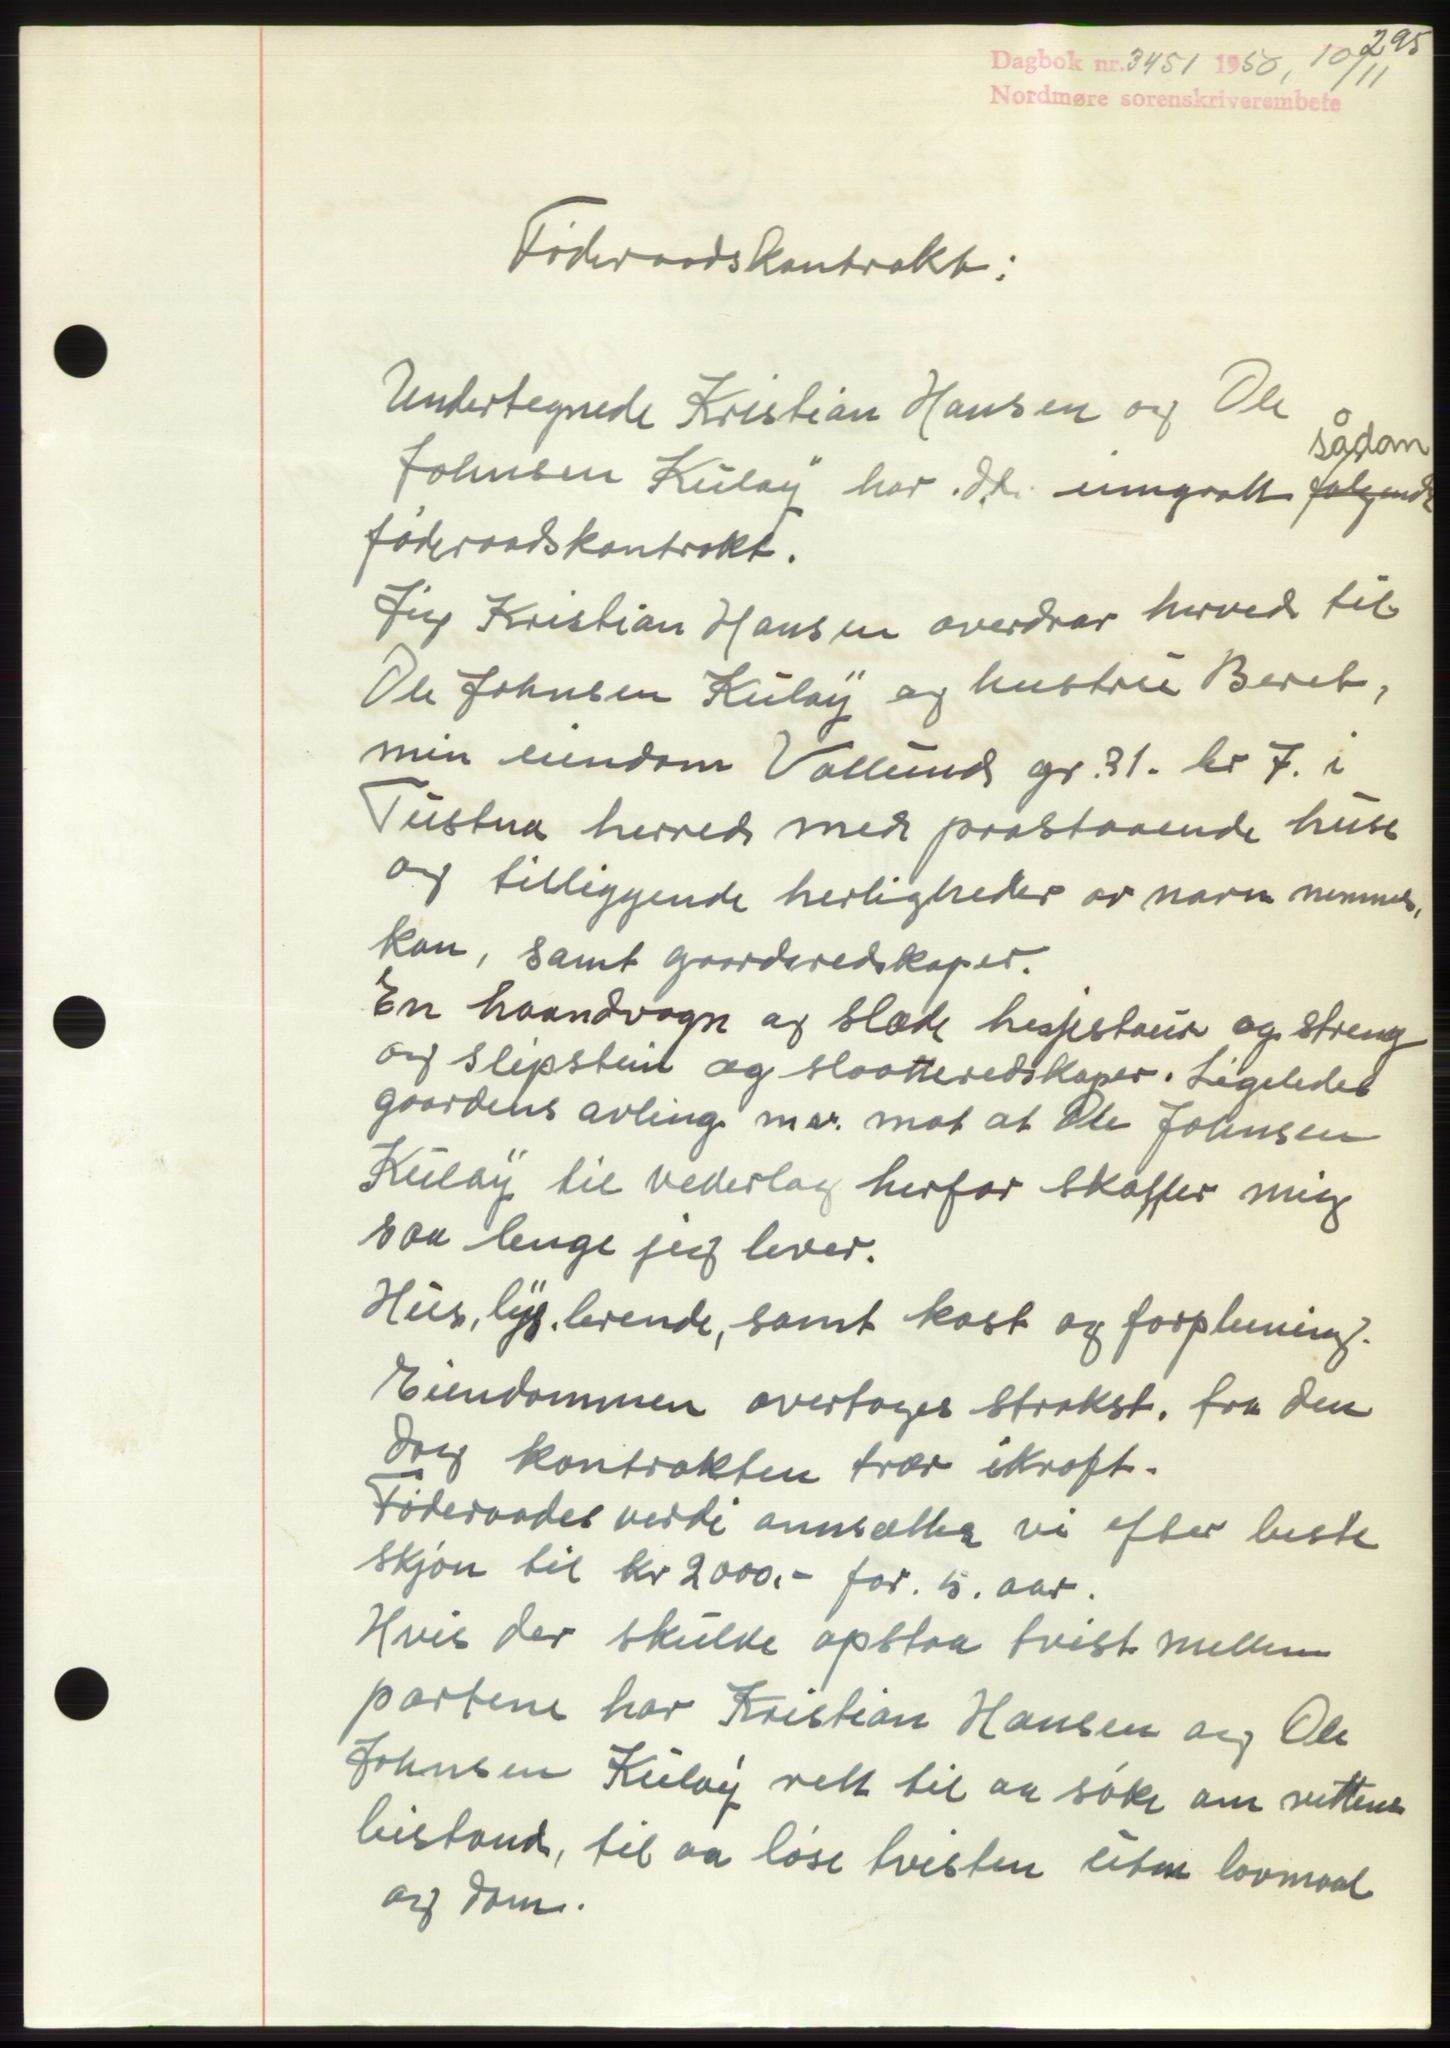 295
Dagbok nr. 3451 1950, 10/11
Nordmøre sorenskriverembete
Föderaadskontrakt:
Undertegnede Kristian Hansen og Ole
sådan
Johnsen Kuløy har d.d. inngått følgende
föderaadskontrakt.
Jeg Kristian Hansen overdrar herved til
Ole Johnsen Kuløy og hustru Beret,
min eiendom Vollund gr. 31. br 7. i
Tustna herred med paastaaende huse
og tilliggende herligheder av navn nevnes,
kan, samt gaardsredskaper.
En haandvogn og slæde hesjestaur og streng
og slipstein og slaatteredskaper. Ligeledes
gaardens avling m.v. mot at Ole Johnsen
Kuløy til vederlag herfor skaffer mig
saa lenge jeg lever.
Hus, lys, brende, samt kost og forpleining.
Eiendommen overtages strakst. fra den
dag kontrakten trær ikraft.
Föderaades verdi annsætter vi efter beste
skjön til kr 2000.- for. 5. aar.
Hvis der skulde opstaa tvist mellem
partene har Kristian Hansen og Ole
Johnsen Kuløy rett til aa söke om rettens
bistand, til aa löse tvisten uten lovmaal
og dom.